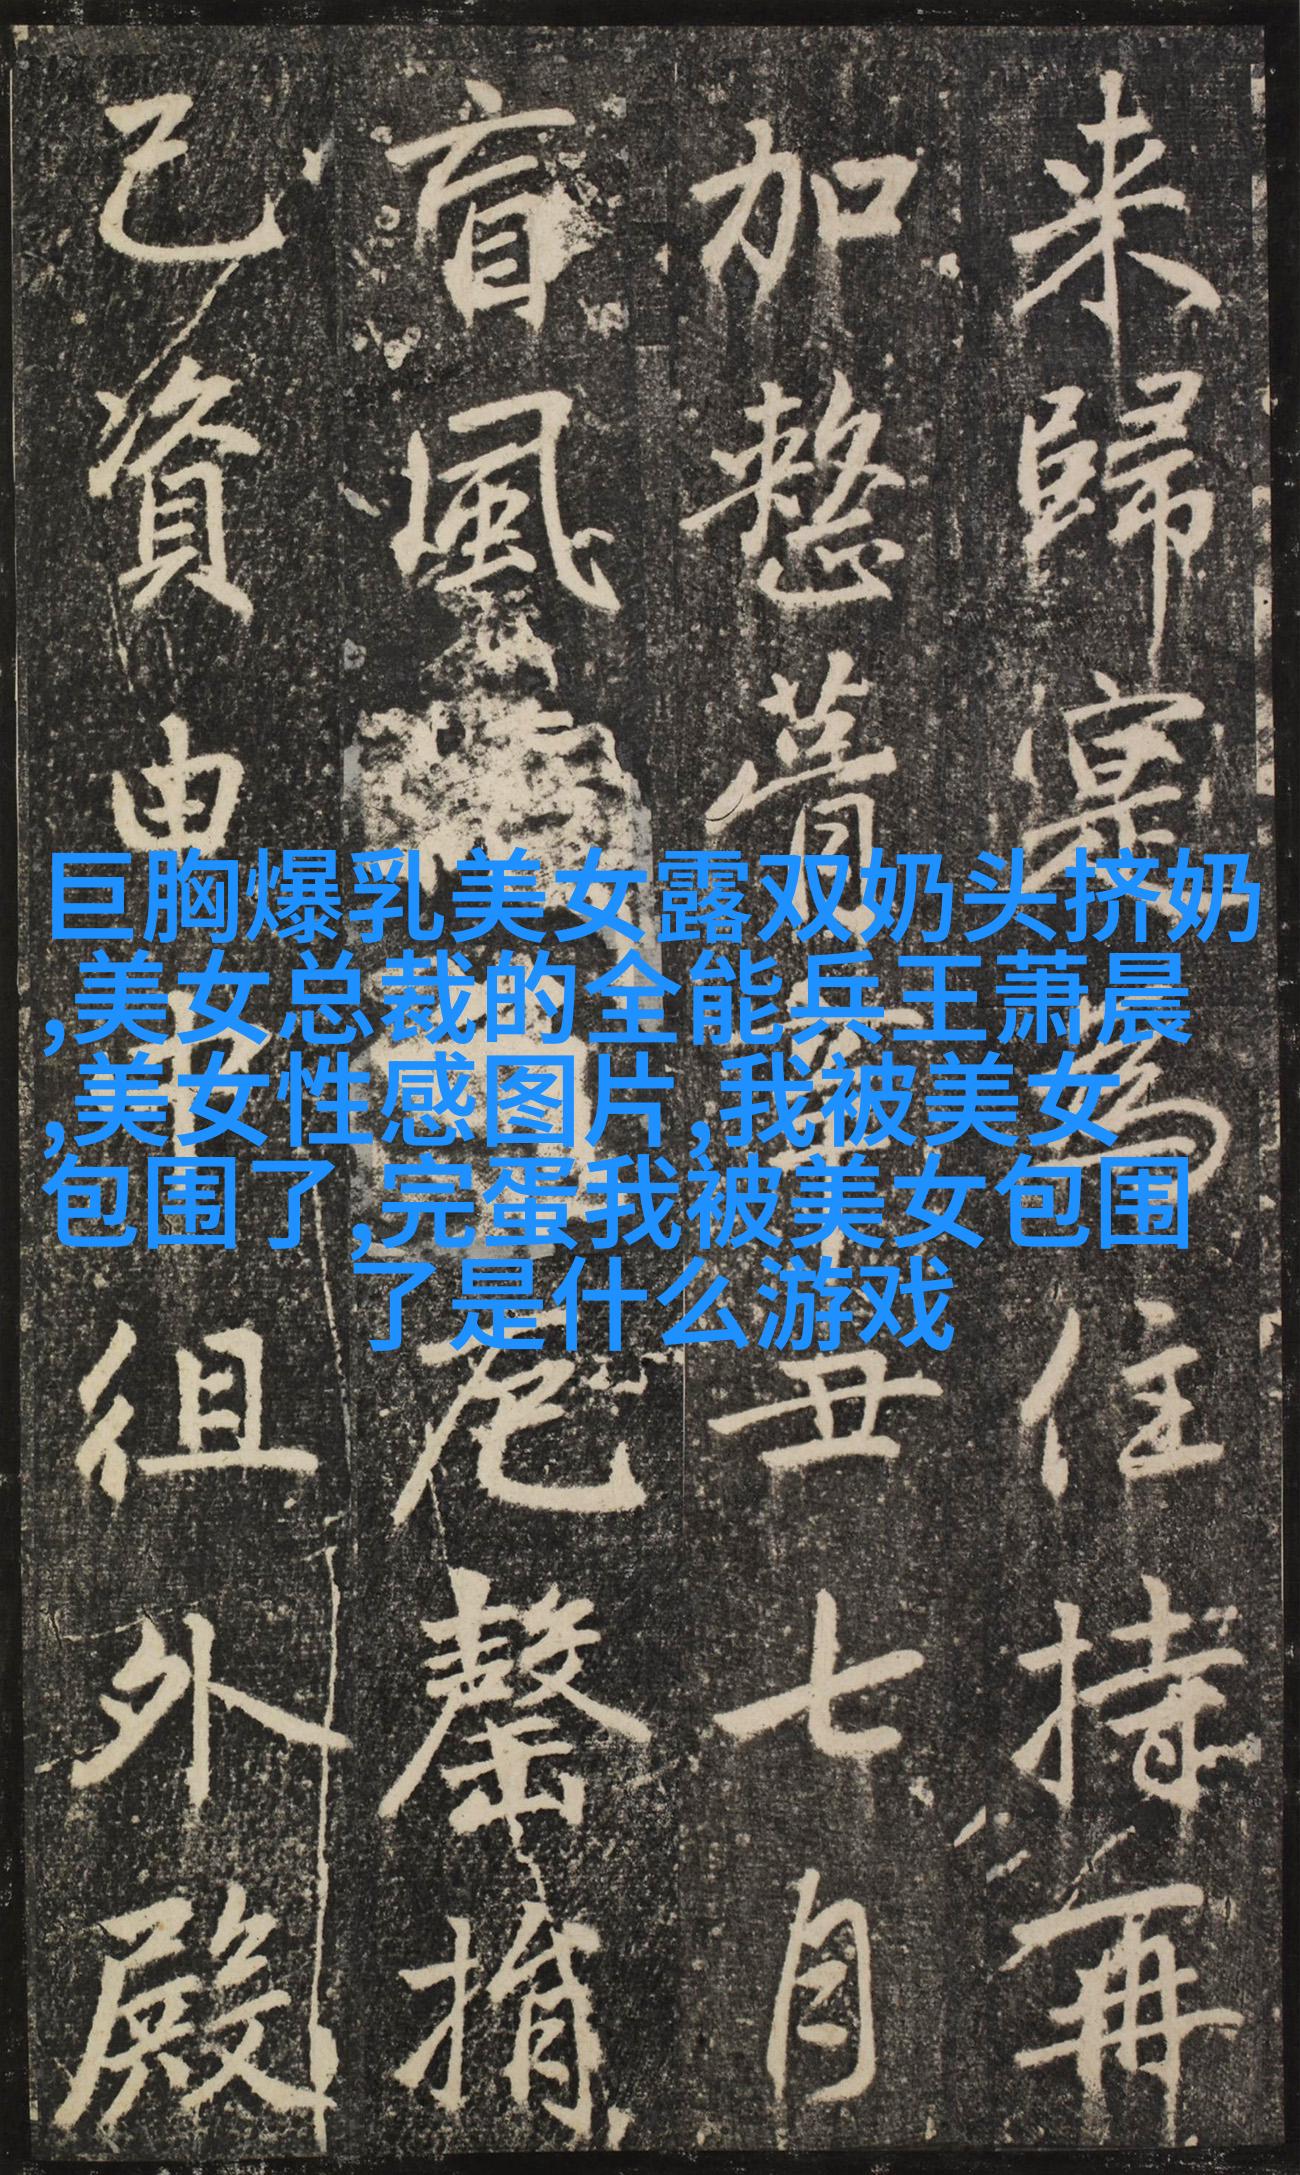 来歸寔為住持再
加丑七月
盲風罄捐
己資由中徂外殿
巨胸爆乳美女露双奶头挤奶
,美女总裁的全能兵王萧晨
,美女性感图片,我被美女
包围了,完蛋我被美女包围
了是什么游戏